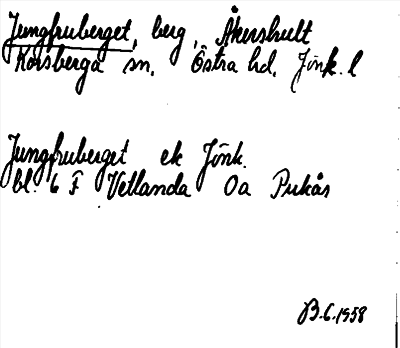 Jungfruberget, berg, Åkershult
Korsberga sn. Östra hd. Jönk. l
Jungfruberget ek Jönk.
bl. 6 F Vetlanda Oa Pukås
B.C. 1958